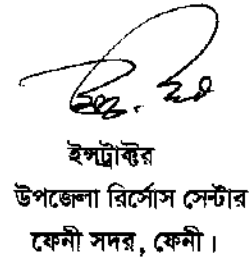 ইন্সট্রাক্টর
উপজেলা রির্সোস সেন্টার
ফেনী সদর, ফেনী।